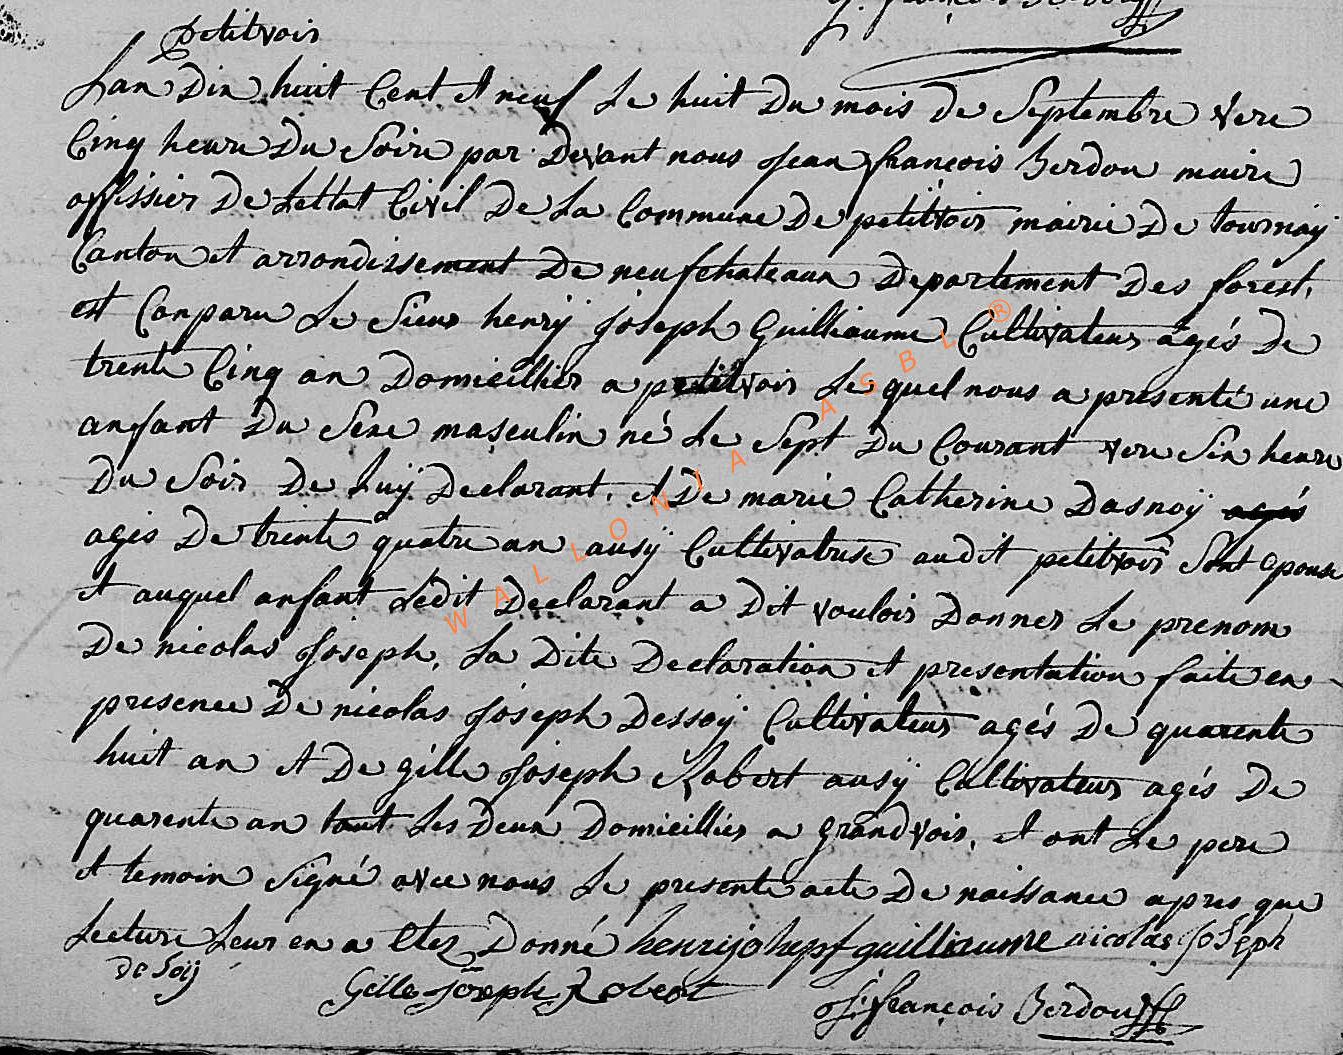 petitvoir
Lan Dix huit Cent et neuf Le huit Du mois de Septembre vere
Cinq heure Du Soire par Devant nous Jean françois Berdou maire
offissier De Lettat Civil De La Commune De petitvoir mairie De tournay
Canton et arrondissement De neufchateaux Departement Des forest,
est Conparu Le Sieur henrÿ Joseph Guilliaume Cultivateur agés De
trente Cinq an Domicillier a petitvoir Le quel nous a presenté une
anfant Du Sexe masculin né Le Sept Du Courant vere Six heure
Du Soir De Luÿ Declarant, et De marie Catherine Dasnoÿ agés
agés De trente quatre an ausÿ Cultivatrise audit petitvoir Sont epouse
et auquel anfant Ledit Declarant a Dit vouloir Donner Le prenom
De nicolas Joseph, La Dite Declaration et presentation faite en
presence De nicolas Joseph Dessoÿ Cultivateur agés De quarente
huit an et De gille Joseph Robert ausÿ Cultivateur agés De
quarente an tout Les Deux Domicilliér a grandvoir, et ont Le pere
et temoin Signé avec nous Le presente acte De naissance apres que
Lecture Leur en a Etez Donné henrijohepf guilliaume nicolas JoSeph
de Soij
Gille Joseph Robert
J. françois Berdou
J. françois Berdou
WALLONIA ASBL ®